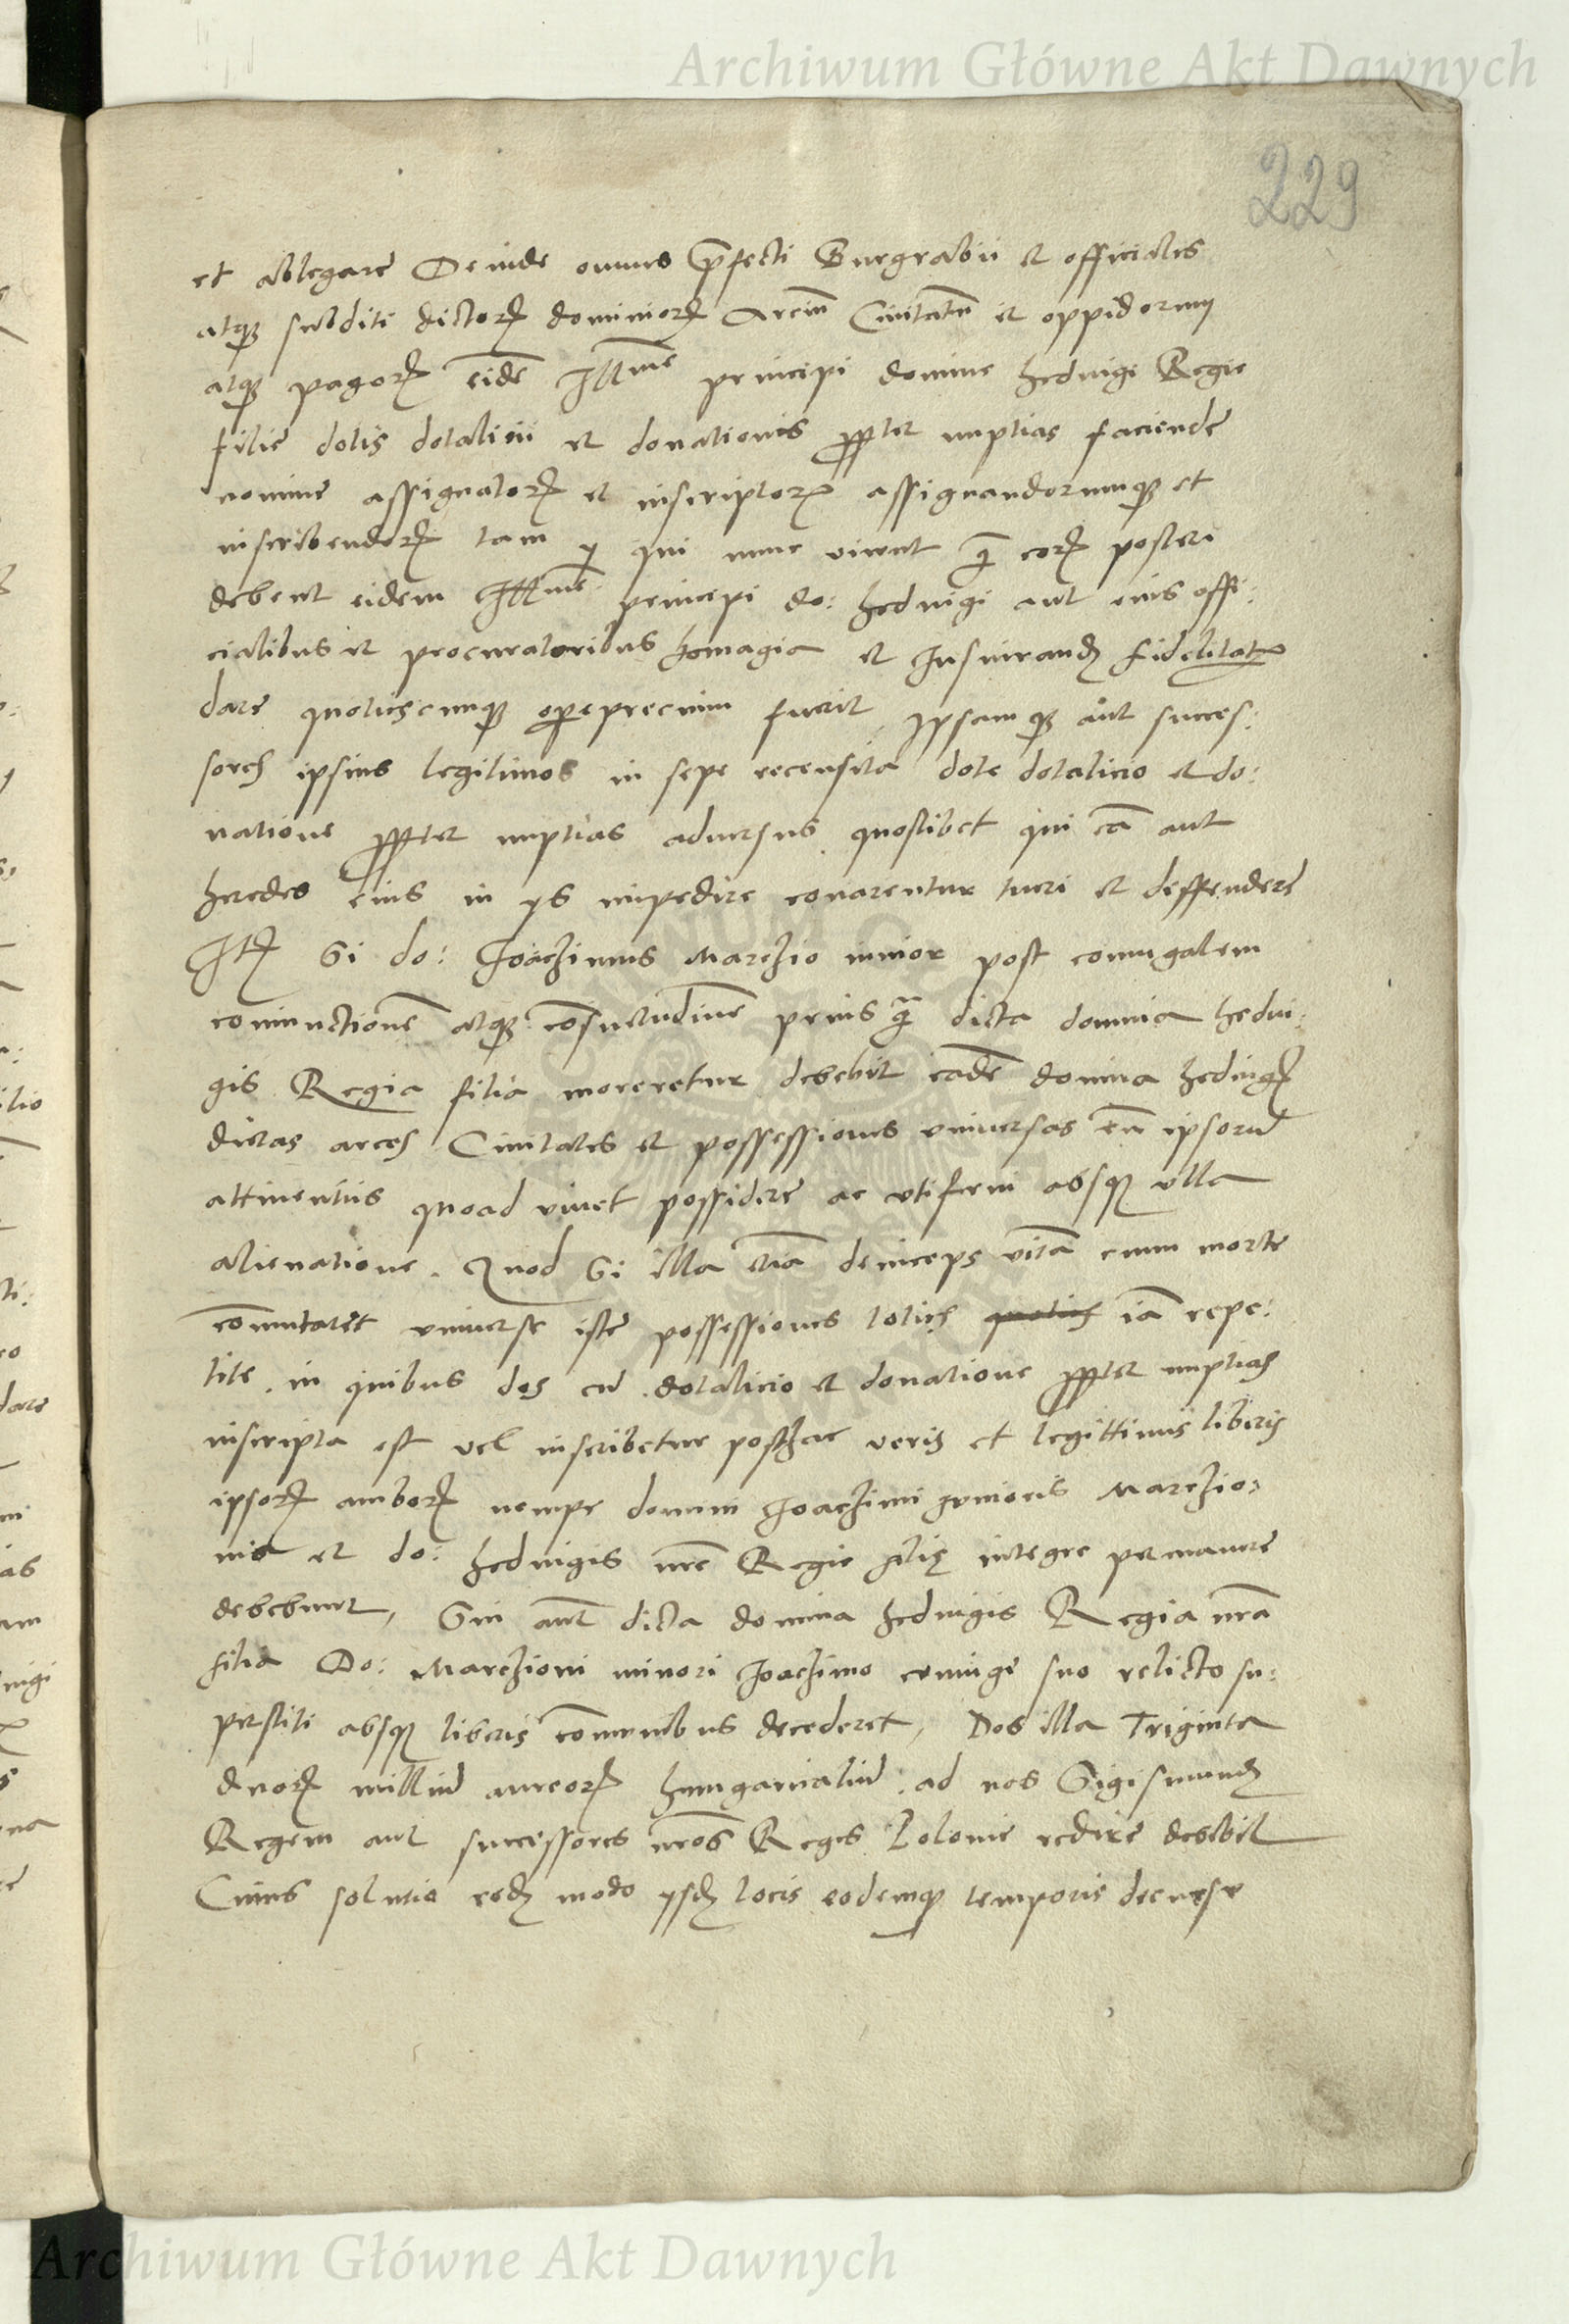 Archiwum Główne Akt Dawnych
229
et ablegare Deinde omnes p̄fecti Burgrabii et officiales
atqꝫ subditi dictoꝝ dominioꝝ Arciū Civitatū et oppidorum
atqꝫ pagoꝝ eidē Illme principi domine hedvigi Regie
filie dotis dotalicii et donationis ꝓpter nuptias faciende
nomine assignatoꝝ et inscriptoꝝ assignandorumqꝫ et
inscribendoꝝ tam y qui nunc vivent q̄ eoꝝ posteri
debent eidem Illme principi do: hedvigi aut eius offi:
cialibus et procuratoribus homagia et Iusiurandꝫ fidelitatꝭ
dare quotiescunqꝫ operepreciuum fuerit Ipsamqꝫ aut succes:
sores ipsius legitimos in sepe recensita dote dotalicio et do:
natione ꝓpter nuptias adversus quoslibet qui eā aut
heredes eius in ys impedire conarentur tueri et deffendere
Itꝫ Si do: Joachimus Marchio iunior post coniugalem
coniunctionē atqꝫ cōsuetudinē prius q̄ dicta domina hedvi:
gis Regia filia moreretur debebit eadē domina hedvigꝭ
dictas arces Civitates et possessiones universas cū ipsorū
attinentiis quoad vivet possidere ac utifrui absqꝫ ulla
alienatione. Quod Si illa etiā deinceps vitā cum morte
cōmutaret universe iste possessiones toties quoties iā repe:
tite. in quibus dos cū dotalicio et donatione ꝓpter nuptias
inscripta est vel inscribetur posthac veris et legittimis liberis
ipsoꝝ amboꝝ nempe domini Joachimi Iunioris Marchio:
nis et do: hedvigis nr̄e Regie filię integre permanere
debebunt, Sin aūt dicta domina hedvigis Regia nr̄a
filia Do: Marchioni minori Joachimo coniuge suo relicto su:
perstiti absqꝫ liberis cōmunibus decederet, Dos illa Triginta
duoꝝ milliū aureoꝝ hungaricaliū. ad nos Sigismundꝫ
Regem aut successores nr̄os Reges Polonie redire debebit
Cuius solutio eodꝫ modo ysdꝫ locis eodemqꝫ temporis decurse
Archiwum Główne Akt Dawnych